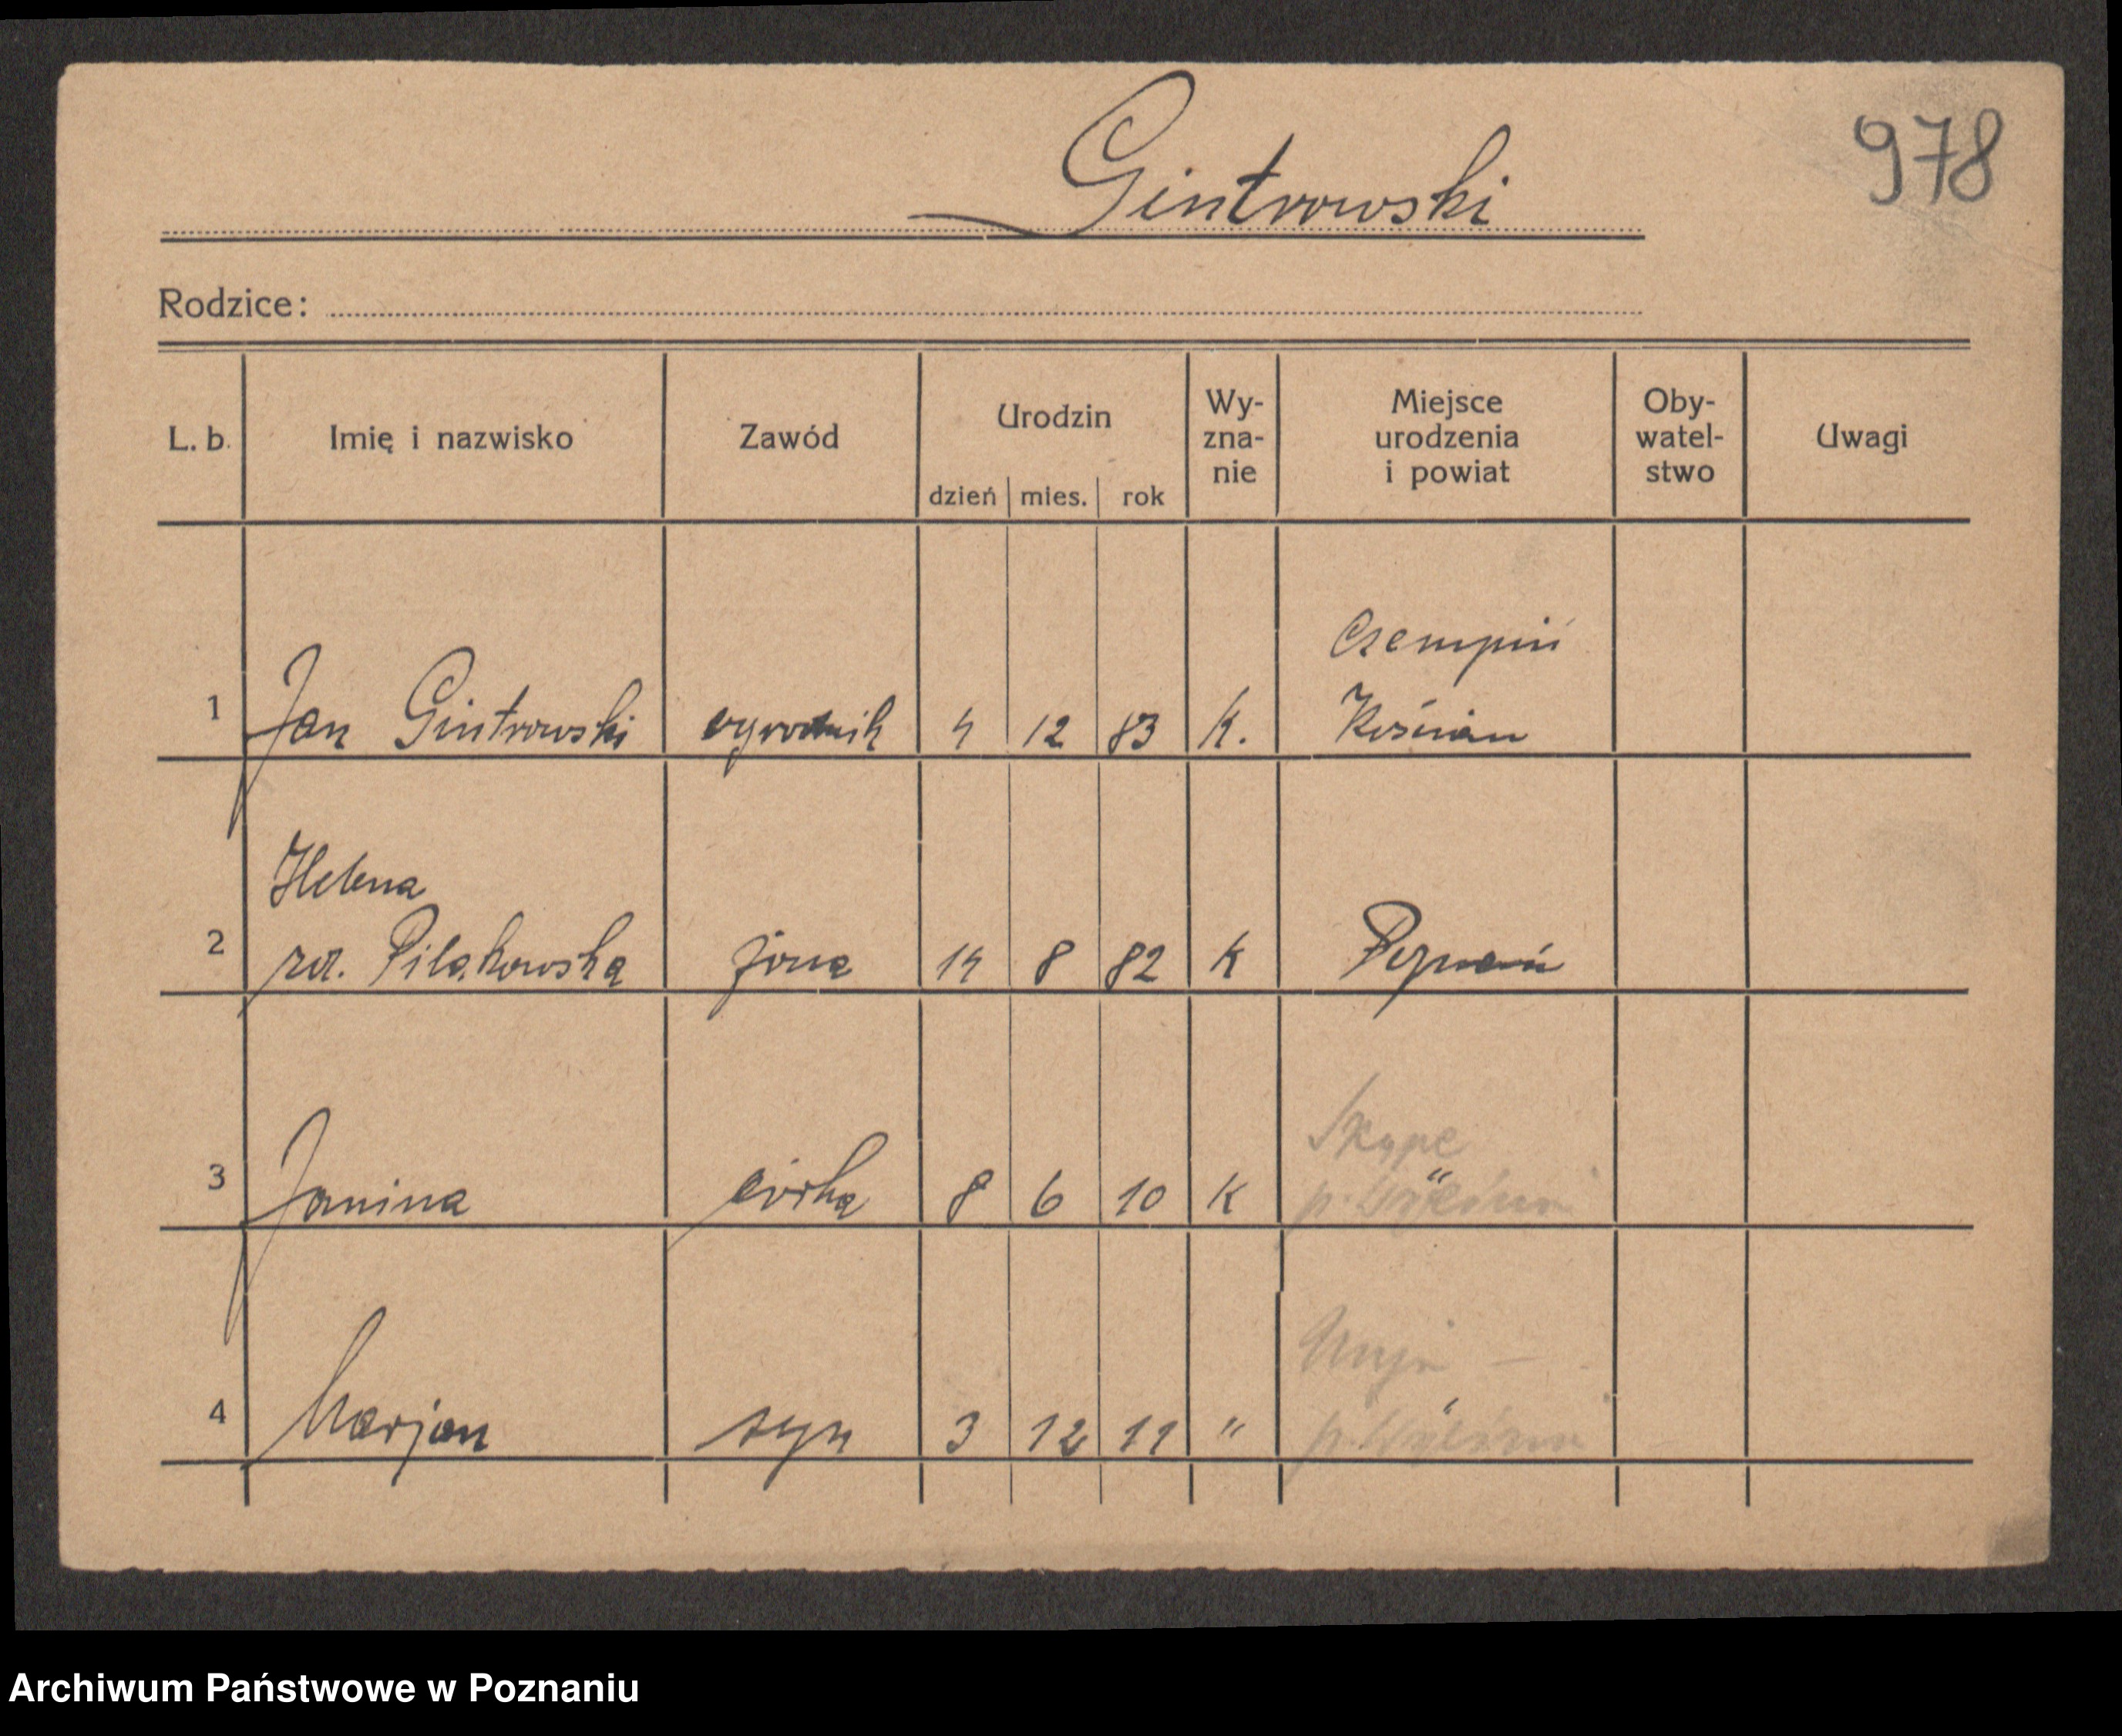 Gintrowski
978
Rodzice:
L. b. Imię i nazwisko Zawód Urodzin dzień mies. rok Wy-zna-nie Miejsce urodzenia i powiat Oby-watel-stwo Uwagi
Czempiń
1 Jan Gintrowski ogrodnik 4 12 83 K. Kościan
Helena
2 rd. Pilakowska żona 14 8 82 K Poznań
3 Janina córka 8 6 10 K "
4 Marjan syn 3 12 11 "
Archiwum Państwowe w Poznaniu